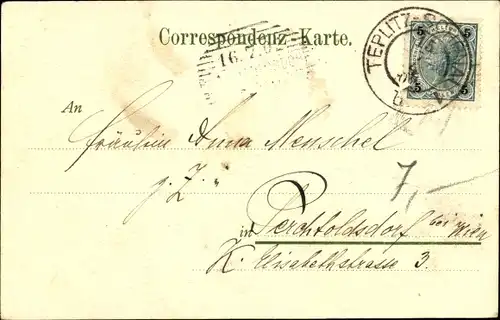 Correspondenz-Karte.
16.7.
TEPLITZ-
5 5
An
Fräulein Anna Menschel
p. Z. "
7,-
in Perchtoldsdorf bei Wien
K. Elisabethstrasse 3.